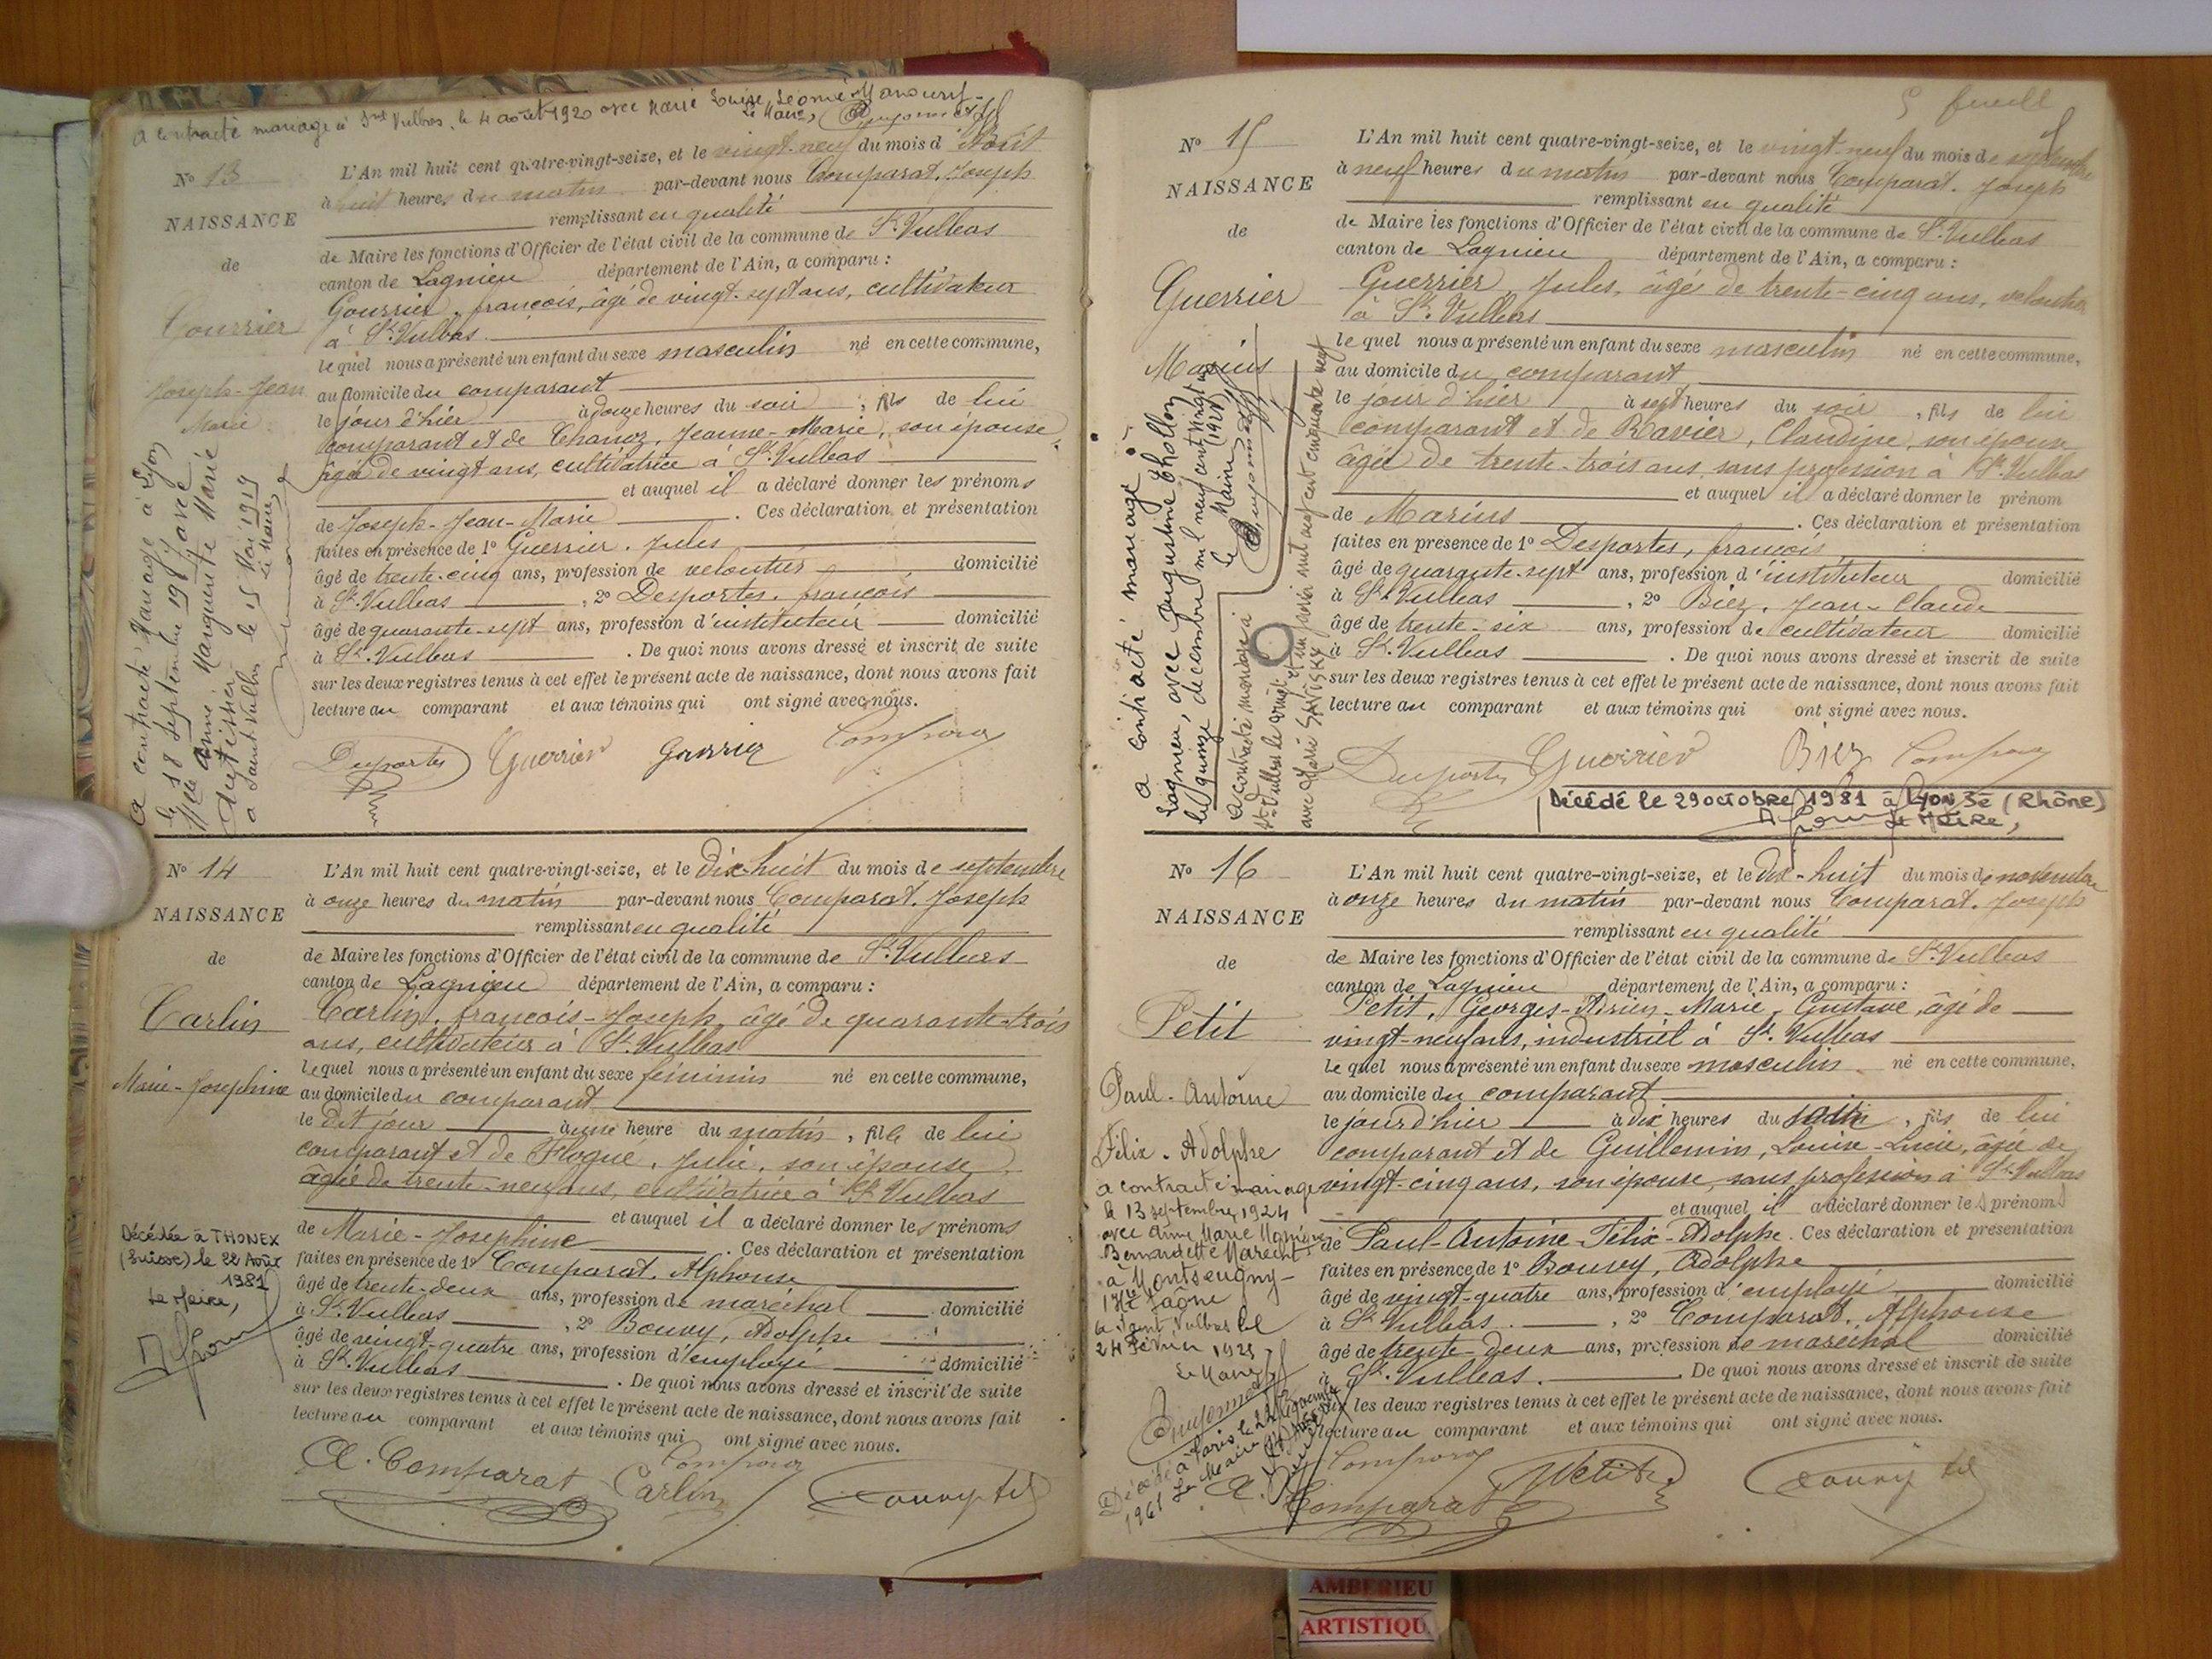 a contracté mariage à Snt Vulbas, le 4 août 1920 avec Marie Louise Léonie
Le Maire,
No 13
NAISSANCE
de
Gourrier
Joseph-Jean
Marie
L'An mil huit cent quatre-vingt-seize, et le vingt-neuf du mois d'Août
à huit heures du matin par-devant nous Comparat, Joseph
remplissant en qualité
de Maire les fonctions d'Officier de l'état civil de la commune de St. Vulbas
canton de Lagnieu département de l'Ain, a comparu :
Gourrier, françois, âgé de vingt-sept ans, cultivateur
à St. Vulbas
lequel nous a présenté un enfant du sexe masculin né en cette commune,
au domicile du comparant
le jour d'hier à douze heures du soir, fils de lui
comparant et de Chanoz, Jeanne-Marie, son épouse,
âgée de vingt ans, cultivatrice à St. Vulbas
et auquel il a déclaré donner les prénoms
de Joseph-Jean-Marie. Ces déclaration et présentation
faites en présence de 1o Guerrier, Jules
âgé de trente-cinq ans, profession de veloutier domicilié
à St. Vulbas, 2o Desportes, françois
âgé de quarante-sept ans, profession d'instituteur domicilié
à St. Vulbas. De quoi nous avons dressé et inscrit de suite
sur les deux registres tenus à cet effet le présent acte de naissance, dont nous avons fait
lecture au comparant et aux témoins qui ont signé avec nous.
Desportes Guerrier Gourrier Comparat
a contracté Mariage à Lyon
le 18 Septembre 1918 avec
Melle Anne Marguerite Marie
à Saint Vulbas le 15 Mai 1919
Le Maire
No 14
NAISSANCE
de
Carlin
Marie-Josephine
L'An mil huit cent quatre-vingt-seize, et le Dix-huit du mois de septembre
à onze heures du matin par-devant nous Comparat, Joseph
remplissant en qualité
de Maire les fonctions d'Officier de l'état civil de la commune de St. Vulbas
canton de Lagnieu département de l'Ain, a comparu :
Carlin, françois-Joseph, âgé de quarante-trois
ans, cultivateur à St. Vulbas
lequel nous a présenté un enfant du sexe féminin né en cette commune,
au domicile du comparant
le dit jour à une heure du matin, fille de lui
comparant et de Flogue, Julie, son épouse,
âgée de trente-neuf ans, cultivatrice à St Vulbas
et auquel il a déclaré donner les prénoms
de Marie-Josephine. Ces déclaration et présentation
faites en présence de 1o Comparat, Alphonse
âgé de trente-deux ans, profession de maréchal domicilié
à St. Vulbas, 2o Bouvy, Adolphe
âgé de vingt-quatre ans, profession d'employé domicilié
à St. Vulbas. De quoi nous avons dressé et inscrit de suite
sur les deux registres tenus à cet effet le présent acte de naissance, dont nous avons fait
lecture au comparant et aux témoins qui ont signé avec nous.
A. Comparat Carlin Comparat
Décédée à THONEX
(Suisse) le 22 Août
1981
Le Maire,
5 feuill
No 15
NAISSANCE
de
Guerrier
Marius
L'An mil huit cent quatre-vingt-seize, et le vingt-neuf du mois de septembre
à neuf heures du matin par-devant nous Comparat, Joseph
remplissant en qualité
de Maire les fonctions d'Officier de l'état civil de la commune de St. Vulbas
canton de Lagnieu département de l'Ain, a comparu :
Guerrier, Jules, âgé de trente-cinq ans, veloutier
à St. Vulbas
lequel nous a présenté un enfant du sexe masculin né en cette commune,
au domicile du comparant
le jour d'hier à sept heures du soir, fils de lui
comparant et de Ravier, Claudine, son épouse
âgée de trente-trois ans, sans profession à St. Vulbas
et auquel il a déclaré donner le prénom
de Marius. Ces déclaration et présentation
faites en présence de 1o Desportes, françois
âgé de quarante-sept ans, profession d'instituteur domicilié
à St. Vulbas, 2o Biez, Jean-Claude
âgé de trente-six ans, profession de cultivateur domicilié
à St. Vulbas. De quoi nous avons dressé et inscrit de suite
sur les deux registres tenus à cet effet le présent acte de naissance, dont nous avons fait
lecture au comparant et aux témoins qui ont signé avec nous.
Desportes Guerrier Biez Comparat
Décédé le 29 octobre 1981 à Lyon 3e (Rhône)
Le Maire,
a contracté mariage à
Lagnieu, avec Augustine Chollon
le quinze décembre mil neuf cent vingt
Le Maire
a contracté mariage à
St Vulbas le vingt et un janvier mil neuf cent cinquante neuf
avec Marie
No 16
NAISSANCE
de
Petit
Paul-Antoine
Félix-Adolphe
L'An mil huit cent quatre-vingt-seize, et le Dix-huit du mois de novembre
à onze heures du matin par-devant nous Comparat, Joseph
remplissant en qualité
de Maire les fonctions d'Officier de l'état civil de la commune de St. Vulbas
canton de Lagnieu département de l'Ain, a comparu :
Petit, Georges-Adrien-Marie-Gustave, âgé de
vingt-neuf ans, industriel à St. Vulbas
lequel nous a présenté un enfant du sexe masculin né en cette commune,
au domicile du comparant
le jour d'hier à dix heures du, fils de lui
comparant et de Guillemin, Louise-Lucie, âgée de
vingt-cinq ans, son épouse, sans profession à St. Vulbas
et auquel il a déclaré donner les prénoms
de Paul-Antoine-Félix-Adolphe. Ces déclaration et présentation
faites en présence de 1o Bouvy, Adolphe
âgé de vingt-quatre ans, profession d'employé domicilié
à St. Vulbas, 2o Comparat, Alphonse
âgé de trente-deux ans, profession de maréchal domicilié
à St. Vulbas. De quoi nous avons dressé et inscrit de suite
sur les deux registres tenus à cet effet le présent acte de naissance, dont nous avons fait
lecture au comparant et aux témoins qui ont signé avec nous.
Comparat Petit
Comparat
a contracté mariage
le 13 septembre 1924
avec Anne Marie
Bernardette
à Montseugny
Hte Saône
à Saint Vulbas le
24 Février 1925
Le Maire
Décédé à Paris le
1961 Le Maire
AMBERIEU
ARTISTIQU